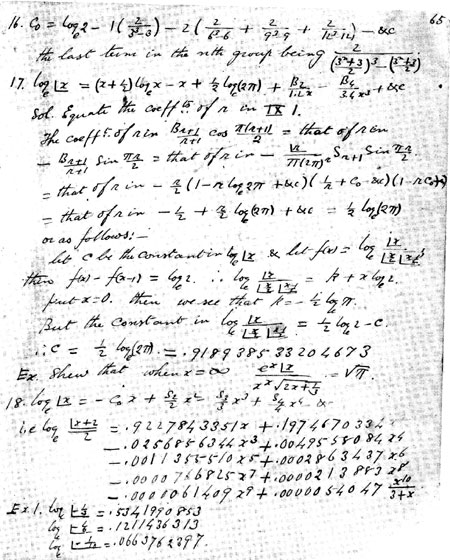 65
16. C₀ = log 2 - 1(2/(3³-3)) - 2(2/(6³-6) + 2/(9³-9) + 2/(12³-12)) - &c
the last term in the nth group being 2/((3ⁿ+3)/2)³ - ((3ⁿ+3)/2)
17. log_e |x = (x+½)log x - x + ½ log(2π) + B₂/1.2x - B₄/3.4x³ + &c
Sol. Equate the coeffts of r in IX 1.
The coefft. of r in B_{r+1}/(r+1) cos π(r+1)/2 = that of r in
- B_{r+1}/(r+1) Sin πr/2 = that of r in - |r/π(2π)^r S_{r+1} Sin πr/2
= that of r in - r/2 (1 - r log 2π + &c)(1/r + C₀ - &c)(1 - r C₀ + &c)
= that of r in - ½ + r/2 log(2π) + &c = ½ log(2π)
or as follows:—
Let C be the constant in log_e |x & let f(x) = log_e
then f(x) - f(x-1) = log_e 2. ∴ log_e = k + x log_e 2.
put x = 0. then we see that k = -½ log_e π.
But the constant in log_e = ½ log_e 2 - C.
∴ C = ½ log_e(2π). = .918938533204673
Ex. Shew that when x = ∞ e^x |x / x^x √(2x+⅓) = √π.
18. log_e |x = - C₀ x + S₂/2 x² - S₃/3 x³ + S₄/4 x⁴ - &c
i.e log_e |x+2/2 = .9227843351x + .1974670334x²
- .0256856344x³ + .0049558084x⁴
- .0011355510x⁵ + .0002863437x⁶
- .0000766825x⁷ + .0000213883x⁸
- .0000061409x⁹ + .0000054047 x¹⁰/(3+x)
Ex 1. log = .5341990853
log = .1211436313
log = .0663762397